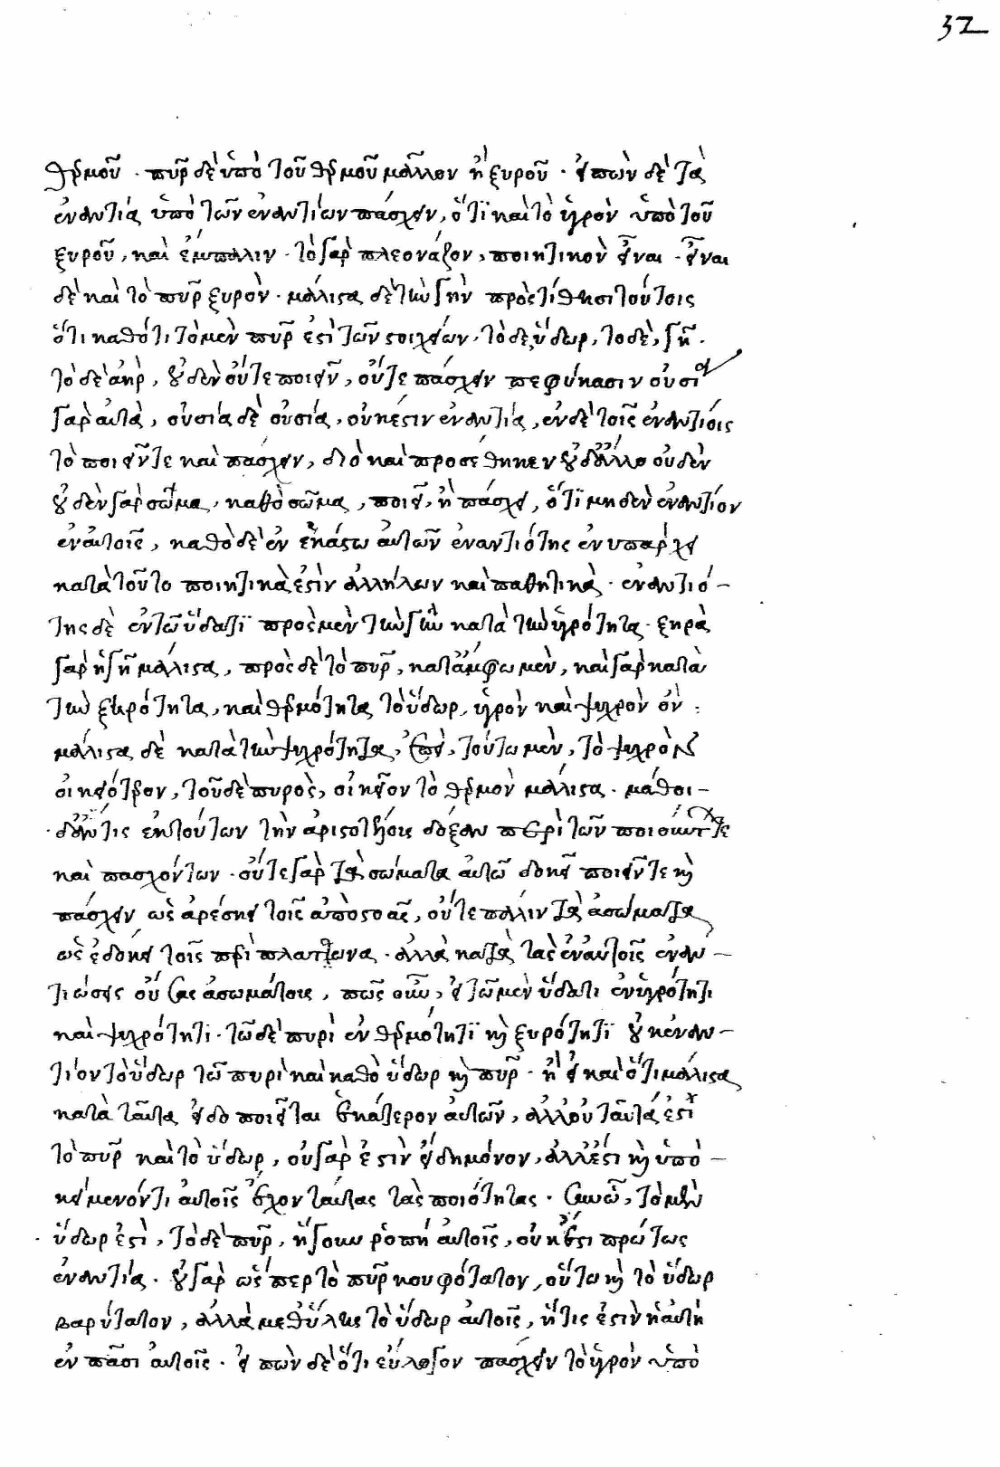 32
θερμοῦ · πῦρ δὲ ὑπὸ τοῦ θερμοῦ μᾶλλον ἢ ξυροῦ · εἰπὼν δὲ τὰ
ἐναντία ὑπὸ τῶν ἐναντίων πάσχειν, ὅτι καὶ τὸ ὑγρὸν ὑπὸ τοῦ
ξυροῦ, καὶ ἐμπαλιν · τὸ γὰρ πλεονάζον, ποιητικὸν εἶναι · εἶναι
δὲ καὶ τὸ πῦρ ξυρὸν · μάλιστα δὲ τὴν γῆν προστίθησι τούτοις
ὅτι καθότι τὸ μὲν πῦρ ἐστὶ τῶν στοιχείων, τὸ δὲ ὕδωρ, τὸ δὲ, γῆ ·
τὸ δὲ ἀὴρ, οὐδὲν οὔτε ποιεῖν, οὔτε πάσχειν πεφύκασιν οὐσί
γὰρ αὐτὰ, οὐσία δὲ οὐσία, οὐκ ἔστιν ἐναντία, ἐν δὲ τοῖς ἐναντίοις
τὸ ποιεῖν τε καὶ πάσχειν, διὸ καὶ προσέθηκεν οὐδ' ἄλλο οὐδὲν
οὐδὲν γὰρ σῶμα, καθὸ σῶμα, ποιεῖ, ἢ πάσχει, ὅτι μηδὲν ἐναντίον
ἐν αὐτοῖς, καθὸ δὲ ἐν ἑκάστω αὐτῶν ἐναντιότης ἐνυπάρχει
κατὰ τοῦτο ποιητικὰ ἐστὶν ἀλλήλων καὶ παθητικὰ · ἐναντιό–
της δὲ ἐν τῶ ὕδατι πρὸς μὲν τὴν γῆν κατὰ τὴν ὑγρότητα · ξηρὰ
γὰρ ἡ γῆ μάλιστα, πρὸς δὲ τὸ πῦρ, κατ' ἄμφω μὲν, καὶ γὰρ κατὰ
τὴν ξυρότητα, καὶ θερμότητα τὸ ὕδωρ, ὑγρὸν καὶ ψυχρὸν ὄν ·
μάλιστα δὲ κατὰ τὴν ψυχρότητα, ἐπεὶ, τούτω μὲν, τὸ ψυχρὸν
οἰκειότερον, τοῦ δὲ πυρὸς, οἰκεῖον τὸ θερμὸν μάλιστα · μάθοι–
δ' ἄν τις ἐκ τούτων τὴν ἀριστοτέλους δόξαν περὶ τῶν ποιούντων τε
καὶ πασχόντων · οὔτε γὰρ τὰ σώματα αὐτῶ δοκεῖ ποιεῖν τε καὶ
πάσχειν ὡς ἀρέσκει τοῖς ἀπὸ στοᾶς, οὔτε πάλιν τὰ ἀσώματα
ὡς ἐδόκει τοῖς περὶ πλάτωνα · ἀλλὰ κατὰ τὰς ἐν αὐτοῖς ἐναν–
τιώσεις οὔσας ἀσωμάτους, πῶς οὖν, εἰ τῶ μὲν ὕδατι ἐν ὑγρότητι
καὶ ψυχρότητι · τῶ δὲ πυρὶ ἐν θερμότητι καὶ ξυρότητι οὐκ ἐναν–
τίον τὸ ὕδωρ τῶ πυρὶ καὶ καθὸ ὕδωρ καὶ πῦρ · ἢ εἰ καὶ ὅτι μάλιστα
κατὰ ταῦτα εἰδοποιεῖται ἑκάτερον αὐτῶν, ἀλλ' οὐ ταῦτά ἐστι
τὸ πῦρ καὶ τὸ ὕδωρ, οὐ γὰρ ἐστὶν εἶδη μόνον, ἀλλ' ἔστι καὶ ὑπο–
κείμενόν τι αὐτοῖς ἔχον ταύτας τὰς ποιότητας · συνῶ, τὸ μὲν
ὕδωρ ἐστὶ, τὸ δὲ πῦρ, ἥ γ' οὖν ῥοπὴ αὐτοῖς, οὐκ ἔστι πρώτως
ἐναντία · οὐ γὰρ ὥσπερ τὸ πῦρ κουφότατον, οὕτω καὶ τὸ ὕδωρ
βαρύτατον, ἀλλὰ μεθ' ὕλης τὸ ὕδωρ αὐτοῖς, ἥτις ἐστὶν ἡ αὐτὴ
ἐν πᾶσι αὐτοῖς · εἰπὼν δὲ ὅτι εὔλογον πάσχειν τὸ ὑγρὸν ὑπὸ